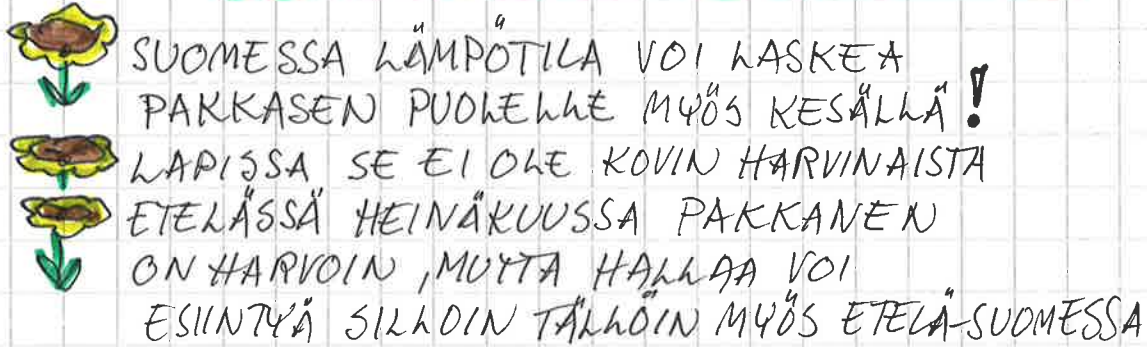 SUOMESSA LÄMPÖTILA VOI LASKEA
PAKKASEN PUOLELLE MYÖS KESÄLLÄ!
LAPISSA SE EI OLE KOVIN HARVINAISTA
ETELÄSSÄ HEINÄKUUSSA PAKKANEN
ON HARVOIN, MUTTA HALLAA VOI
ESIINTYÄ SILLOIN TÄLLÖIN MYÖS ETELÄ-SUOMESSA